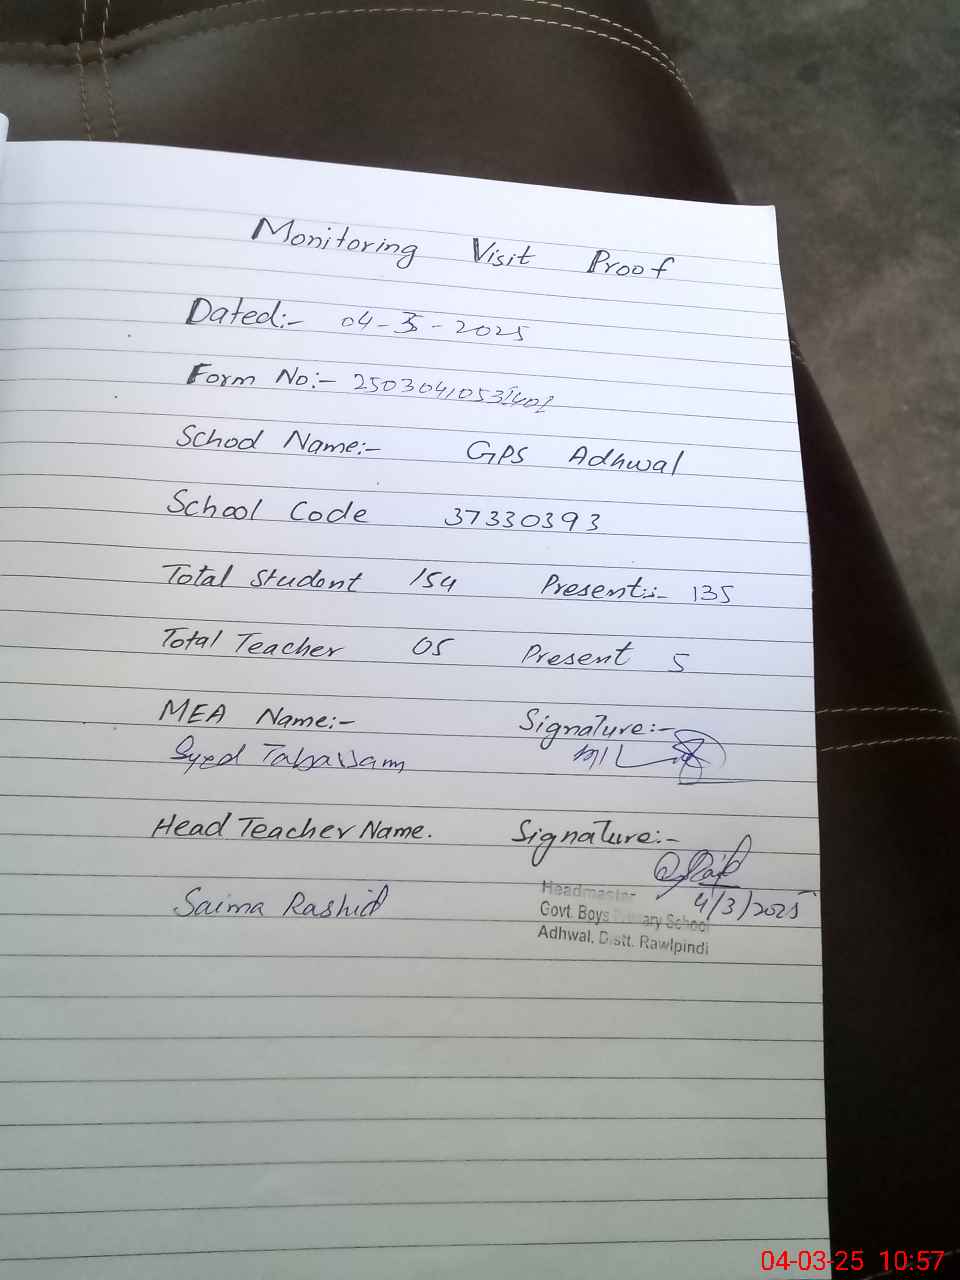 Monitoring Visit Proof
Dated:- 04-3-2025
Form No:-
School Name:- GPS Adhwal
School Code 37330393
Total Student 154 Present:- 135
Total Teacher 05 Present 5
MEA Name:- Signature:-
Syed Tabassam
Head Teacher Name. Signature:-
Saima Rashid 4/3/2025
Headmaster
Govt. Boys Primary School
Adhwal, Distt. Rawlpindi
04-03-25 10:57